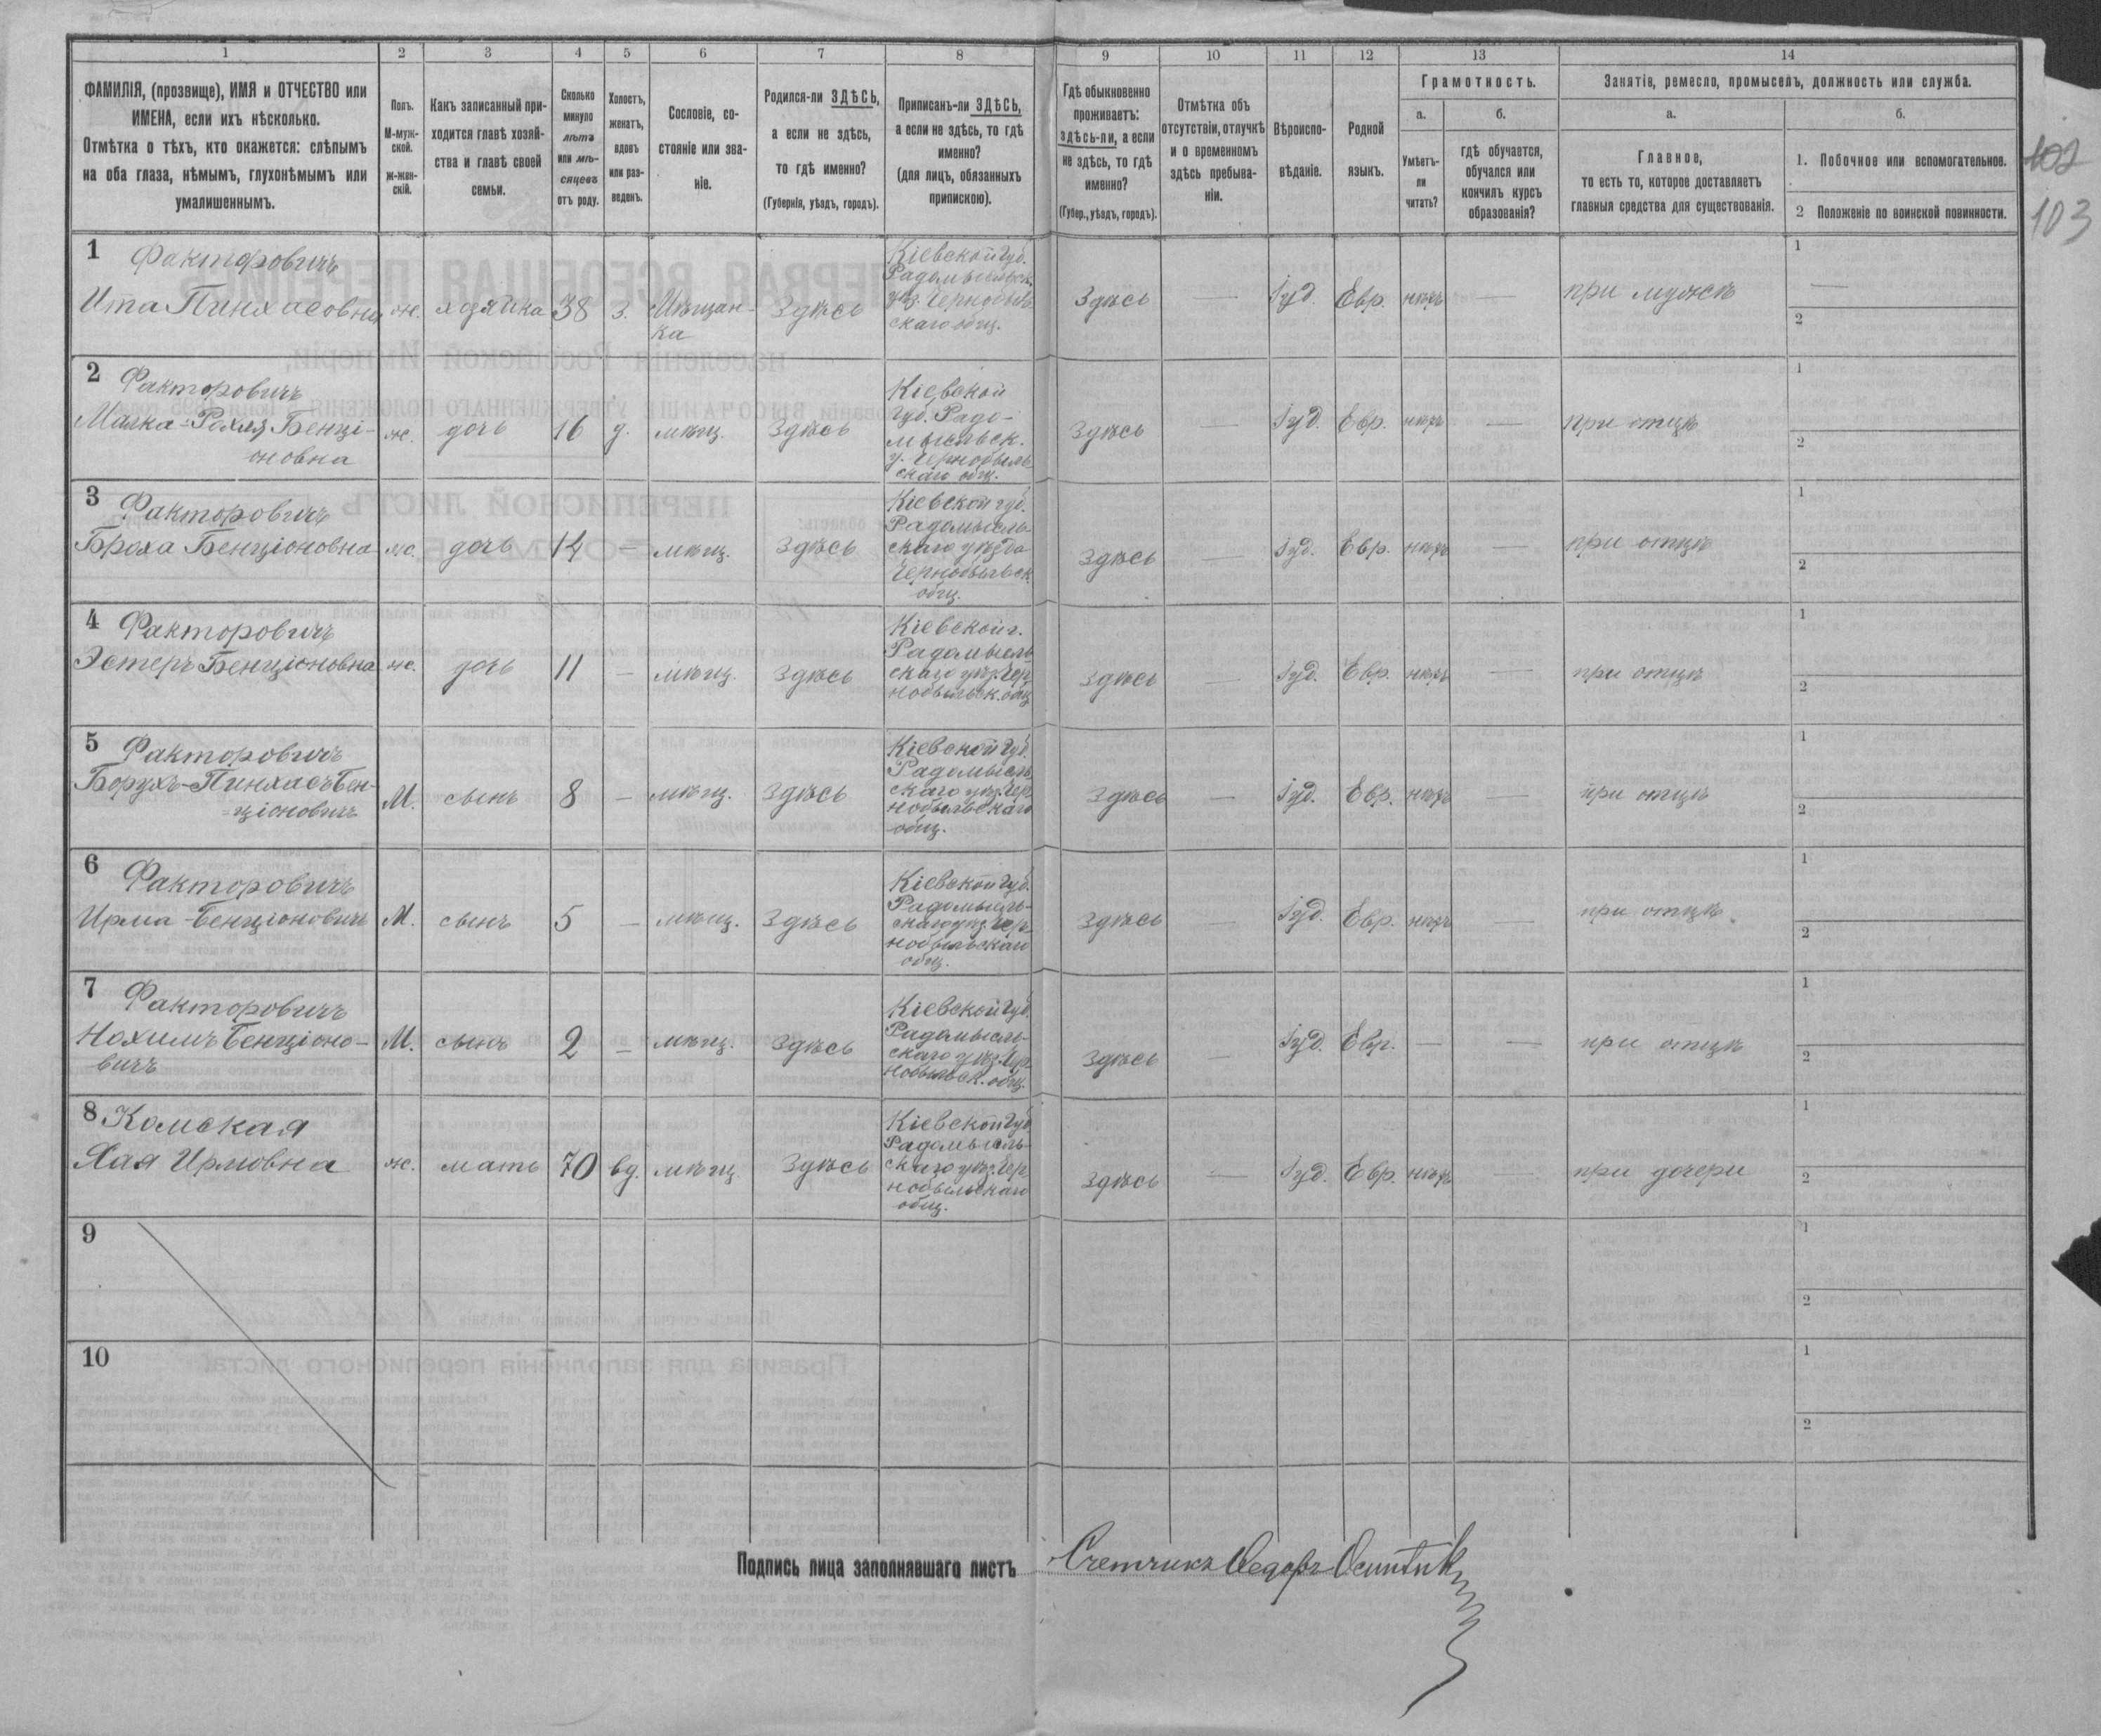 1 2 3 4 5 6 7 8 9 10 11 12 13 14
ФАМИЛІЯ, (прозвище), ИМЯ и ОТЧЕСТВО или
ИМЕНА, если ихъ нѣсколько.
Отмѣтка о тѣхъ, кто окажется: слѣпымъ
на оба глаза, нѣмымъ, глухонѣмымъ или
умалишеннымъ.
Полъ.
М-муж-
ской.
ж-жен-
скій.
Какъ записанный при-
ходится главѣ хозяй-
ства и главѣ своей
семьи.
Сколько
минуло
лѣтъ
или мѣ-
сяцевъ
отъ роду.
Холостъ,
женатъ,
вдовъ
или раз-
веденъ.
Сословіе, со-
стояніе или зва-
ніе.
Родился-ли ЗДѢСЬ,
а если не здѣсь,
то гдѣ именно?
(Губернія, уѣздъ, городъ).
Приписанъ-ли ЗДѢСЬ,
а если не здѣсь, то гдѣ
именно?
(для лицъ, обязанныхъ
припискою).
Гдѣ обыкновенно
проживаетъ:
здѣсь-ли, а если
не здѣсь, то гдѣ
именно?
(Губер., уѣздъ, городъ).
Отмѣтка объ
отсутствіи, отлучкѣ
и о временномъ
здѣсь пребыва-
ніи.
Вѣроиспо-
вѣданіе.
Родной
языкъ.
Грамотность.
а.
Умѣетъ-
ли
читать?
б.
гдѣ обучается,
обучался или
кончилъ курсъ
образованія?
Занятіе, ремесло, промыселъ, должность или служба.
а.
Главное,
то есть то, которое доставляетъ
главныя средства для существованія.
б.
1. Побочное или вспомогательное.
2 Положеніе по воинской повинности.
102
103
1 Факторовичъ
Ита Пинхасовна
ж.
хозяйка
38
З.
Мѣщан-
ка
Здѣсь
Кіевской губ.
Радомысльск.
уѣз. Чернобыль
скаго общ.
Здѣсь
—
Іуд.
Евр.
нѣтъ
—
при мужѣ
1 —
2
2 Факторовичъ
Малка-Рахля Бенці-
оновна
ж.
дочь
16
д.
мѣщ.
Здѣсь
Кіевской
губ. Радо-
мысльск.
у. Чернобыль
скаго общ.
Здѣсь
—
Іуд.
Евр.
нѣтъ
—
при отцѣ
1
2
3 Факторовичъ
Броха Бенціоновна
ж.
дочь
14
—
мѣщ.
Здѣсь
Кіевской губ.
Радомысль-
скаго уѣзда
Чернобыльск.
общ.
Здѣсь
—
Іуд.
Евр.
нѣтъ
—
при отцѣ
1
2
4 Факторовичъ
Эстеръ Бенціоновна
ж.
дочь
11
—
мѣщ.
Здѣсь
Кіевской г.
Радомысль
скаго уѣз. Чер
нобыльск. общ
Здѣсь
—
Іуд.
Евр.
нѣтъ
—
при отцѣ
1
2
5 Факторовичъ
Борухъ-Пинхасъ Бен-
ціоновичъ
М.
сынъ
8
—
мѣщ.
Здѣсь
Кіевской губ.
Радомысль
скаго уѣз. Чер
нобыльскаго
общ.
Здѣсь
—
Іуд.
Евр.
нѣтъ
—
при отцѣ
1
2
6 Факторовичъ
Ирма-Бенціоновичъ
М.
сынъ
5
—
мѣщ.
Здѣсь
Кіевской губ.
Радомысль-
скаго уѣз. Чер
нобыльскаго
общ.
Здѣсь
—
Іуд.
Евр.
нѣтъ
—
при отцѣ
1
2
7 Факторовичъ
Нохимъ Бенціоно-
вичъ
М.
сынъ
2
—
мѣщ.
Здѣсь
Кіевской губ.
Радомысль-
скаго уѣз. Чер
нобыльск. общ.
Здѣсь
—
Іуд.
Евр.
—
—
при отцѣ
1
2
8 Комская
Хая Ирмовна
ж.
мать
70
вд.
мѣщ.
Здѣсь
Кіевской губ
Радомысль-
скаго уѣз. Чер
нобыльскаго
общ.
Здѣсь
—
Іуд.
Евр.
нѣтъ
—
при дочери
1
2
9
1
2
10
1
2
Подпись лица заполнявшаго листъ Счетчикъ Федоръ